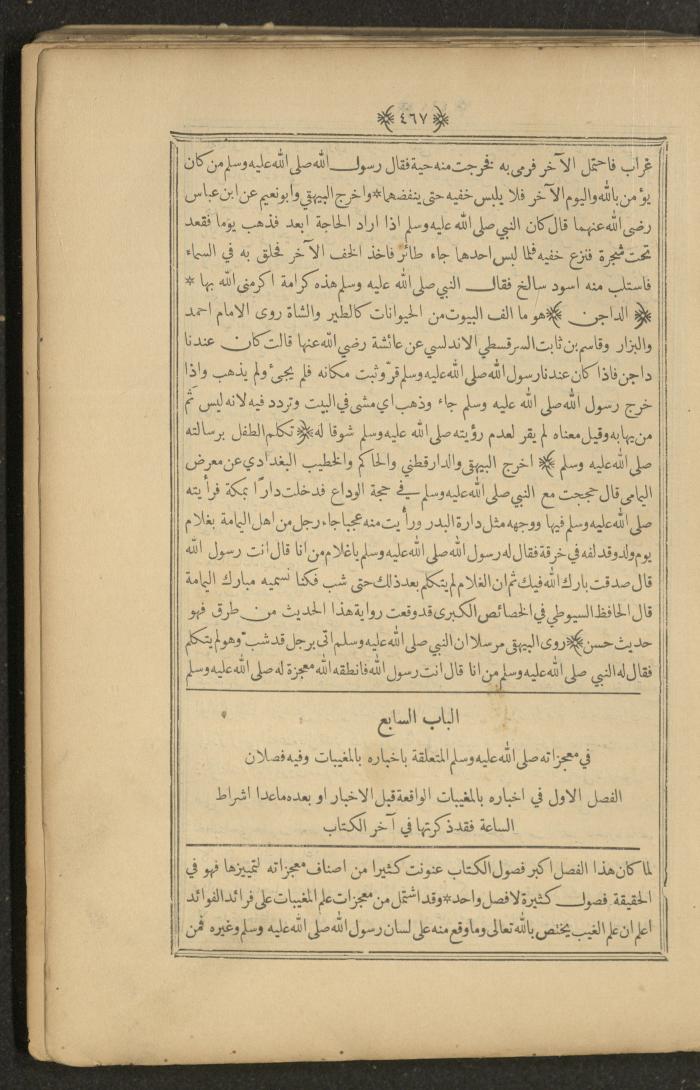 ﴿ ٤٦٧ ﴾
غراب فاحتمل الآخر فرمى به فخرجت منه حية فقال رسول الله صلى الله عليه وسلم من كان
يؤمن بالله واليوم الآخر فلا يلبس خفيه حتى ينفضهما * واخرج البيهقي وابو نعيم عن ابن عباس
رضى الله عنهما قال كان النبي صلى الله عليه وسلم اذا اراد الحاجة ابعد فذهب يوما فقعد
تحت شجرة فنزع خفيه فلما لبس احدهما جاء طائر فاخذ الخف الآخر فحلق به في السماء
فاستلب منه اسود سالخ فقال النبي صلى الله عليه وسلم هذه كرامة اكرمنى الله بها *
﴿ الداجن ﴾ هو ما الف البيوت من الحيوانات كالطير والشاة روى الامام احمد
والبزار وقاسم بن ثابت السرقسطي الاندلسي عن عائشة رضي الله عنها قالت كان عندنا
داجن فاذا كان عندنا رسول الله صلى الله عليه وسلم قرّ وثبت مكانه فلم يجئ ولم يذهب واذا
خرج رسول الله صلى الله عليه وسلم جاء وذهب اي مشى في البيت وتردد فيه لانه ليس ثم
من يهابه وقيل معناه لم يقر لعدم رؤيته صلى الله عليه وسلم شوقا له ﴿ تكلم الطفل برسالته
صلى الله عليه وسلم ﴾ اخرج البيهقي والدارقطني والحاكم والخطيب البغدادي عن معرض
اليمامى قال حججت مع النبي صلى الله عليه وسلم في حجة الوداع فدخلت دارًا بمكة فرأيته
صلى الله عليه وسلم فيها ووجهه مثل دارة البدر ورأيت منه عجبا جاء رجل من اهل اليمامة بغلام
يوم ولد وقد لفه في خرقة فقال له رسول الله صلى الله عليه وسلم ياغلام من انا قال انت رسول الله
قال صدقت بارك الله فيك ثم ان الغلام لم يتكلم بعد ذلك حتى شب فكنا نسميه مبارك اليمامة
قال الحافظ السيوطي في الخصائص الكبرى قد وقعت رواية هذا الحديث من طرق فهو
حديث حسن ﴾ روى البيهقي مرسلا ان النبي صلى الله عليه وسلم اتى برجل قد شب وهو لم يتكلم
فقال له النبي صلى الله عليه وسلم من انا قال انت رسول الله فانطقه الله معجزة له صلى الله عليه وسلم
الباب السابع
في معجزاته صلى الله عليه وسلم المتعلقة باخباره بالمغيبات وفيه فصلان
الفصل الاول في اخباره بالمغيبات الواقعة قبل الاخبار او بعده ماعدا اشراط
الساعة فقد ذكرتها في آخر الكتاب
لما كان هذا الفصل اكبر فصول الكتاب عنونت كثيرا من اصناف معجزاته لتمييزها فهو في
الحقيقة فصول كثيرة لا فصل واحد * وقد اشتمل من معجزات علم المغيبات على فرائد الفوائد
اعلم ان علم الغيب يختص بالله تعالى وما وقع منه على لسان رسول الله صلى الله عليه وسلم وغيره فمن